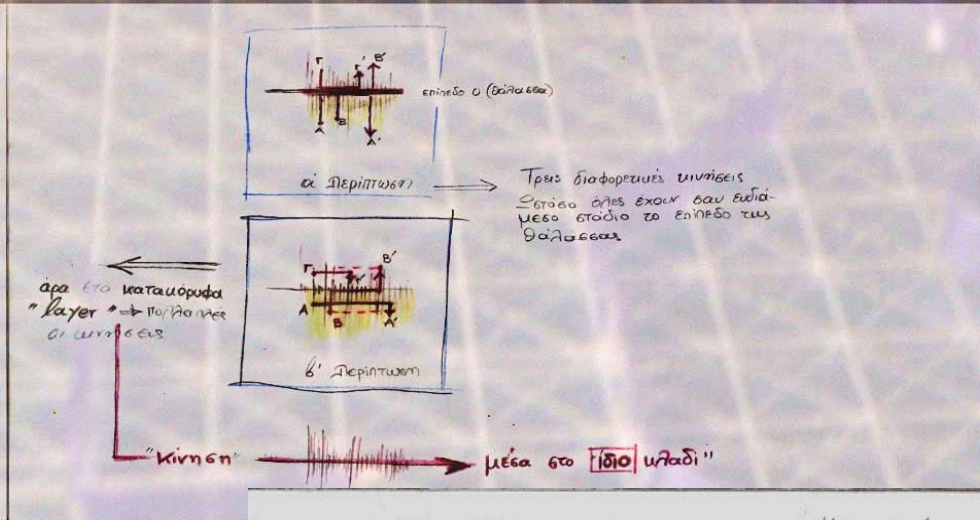 Γ Γ' Β'
επίπεδο 0 (θάλασσα)
Α Β Α'
α' Περίπτωση
Τρεις διαφορετικές κινήσεις
Ωστόσο όλες έχουν σαν ενδιά-
μεσο στάδιο το επίπεδο της
θάλασσας
Γ Γ' Β'
Α Β Α'
β' Περίπτωση
άρα στο κατακόρυφα
"layer" ⇒ πολλαπλές
οι κινήσεις
"κίνηση" μέσα στο ίδιο κλαδί"